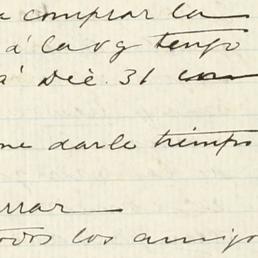 comprar la
á la q tengo
á Dic. 31 con
me darle tiempo
rrar
todos los amigo